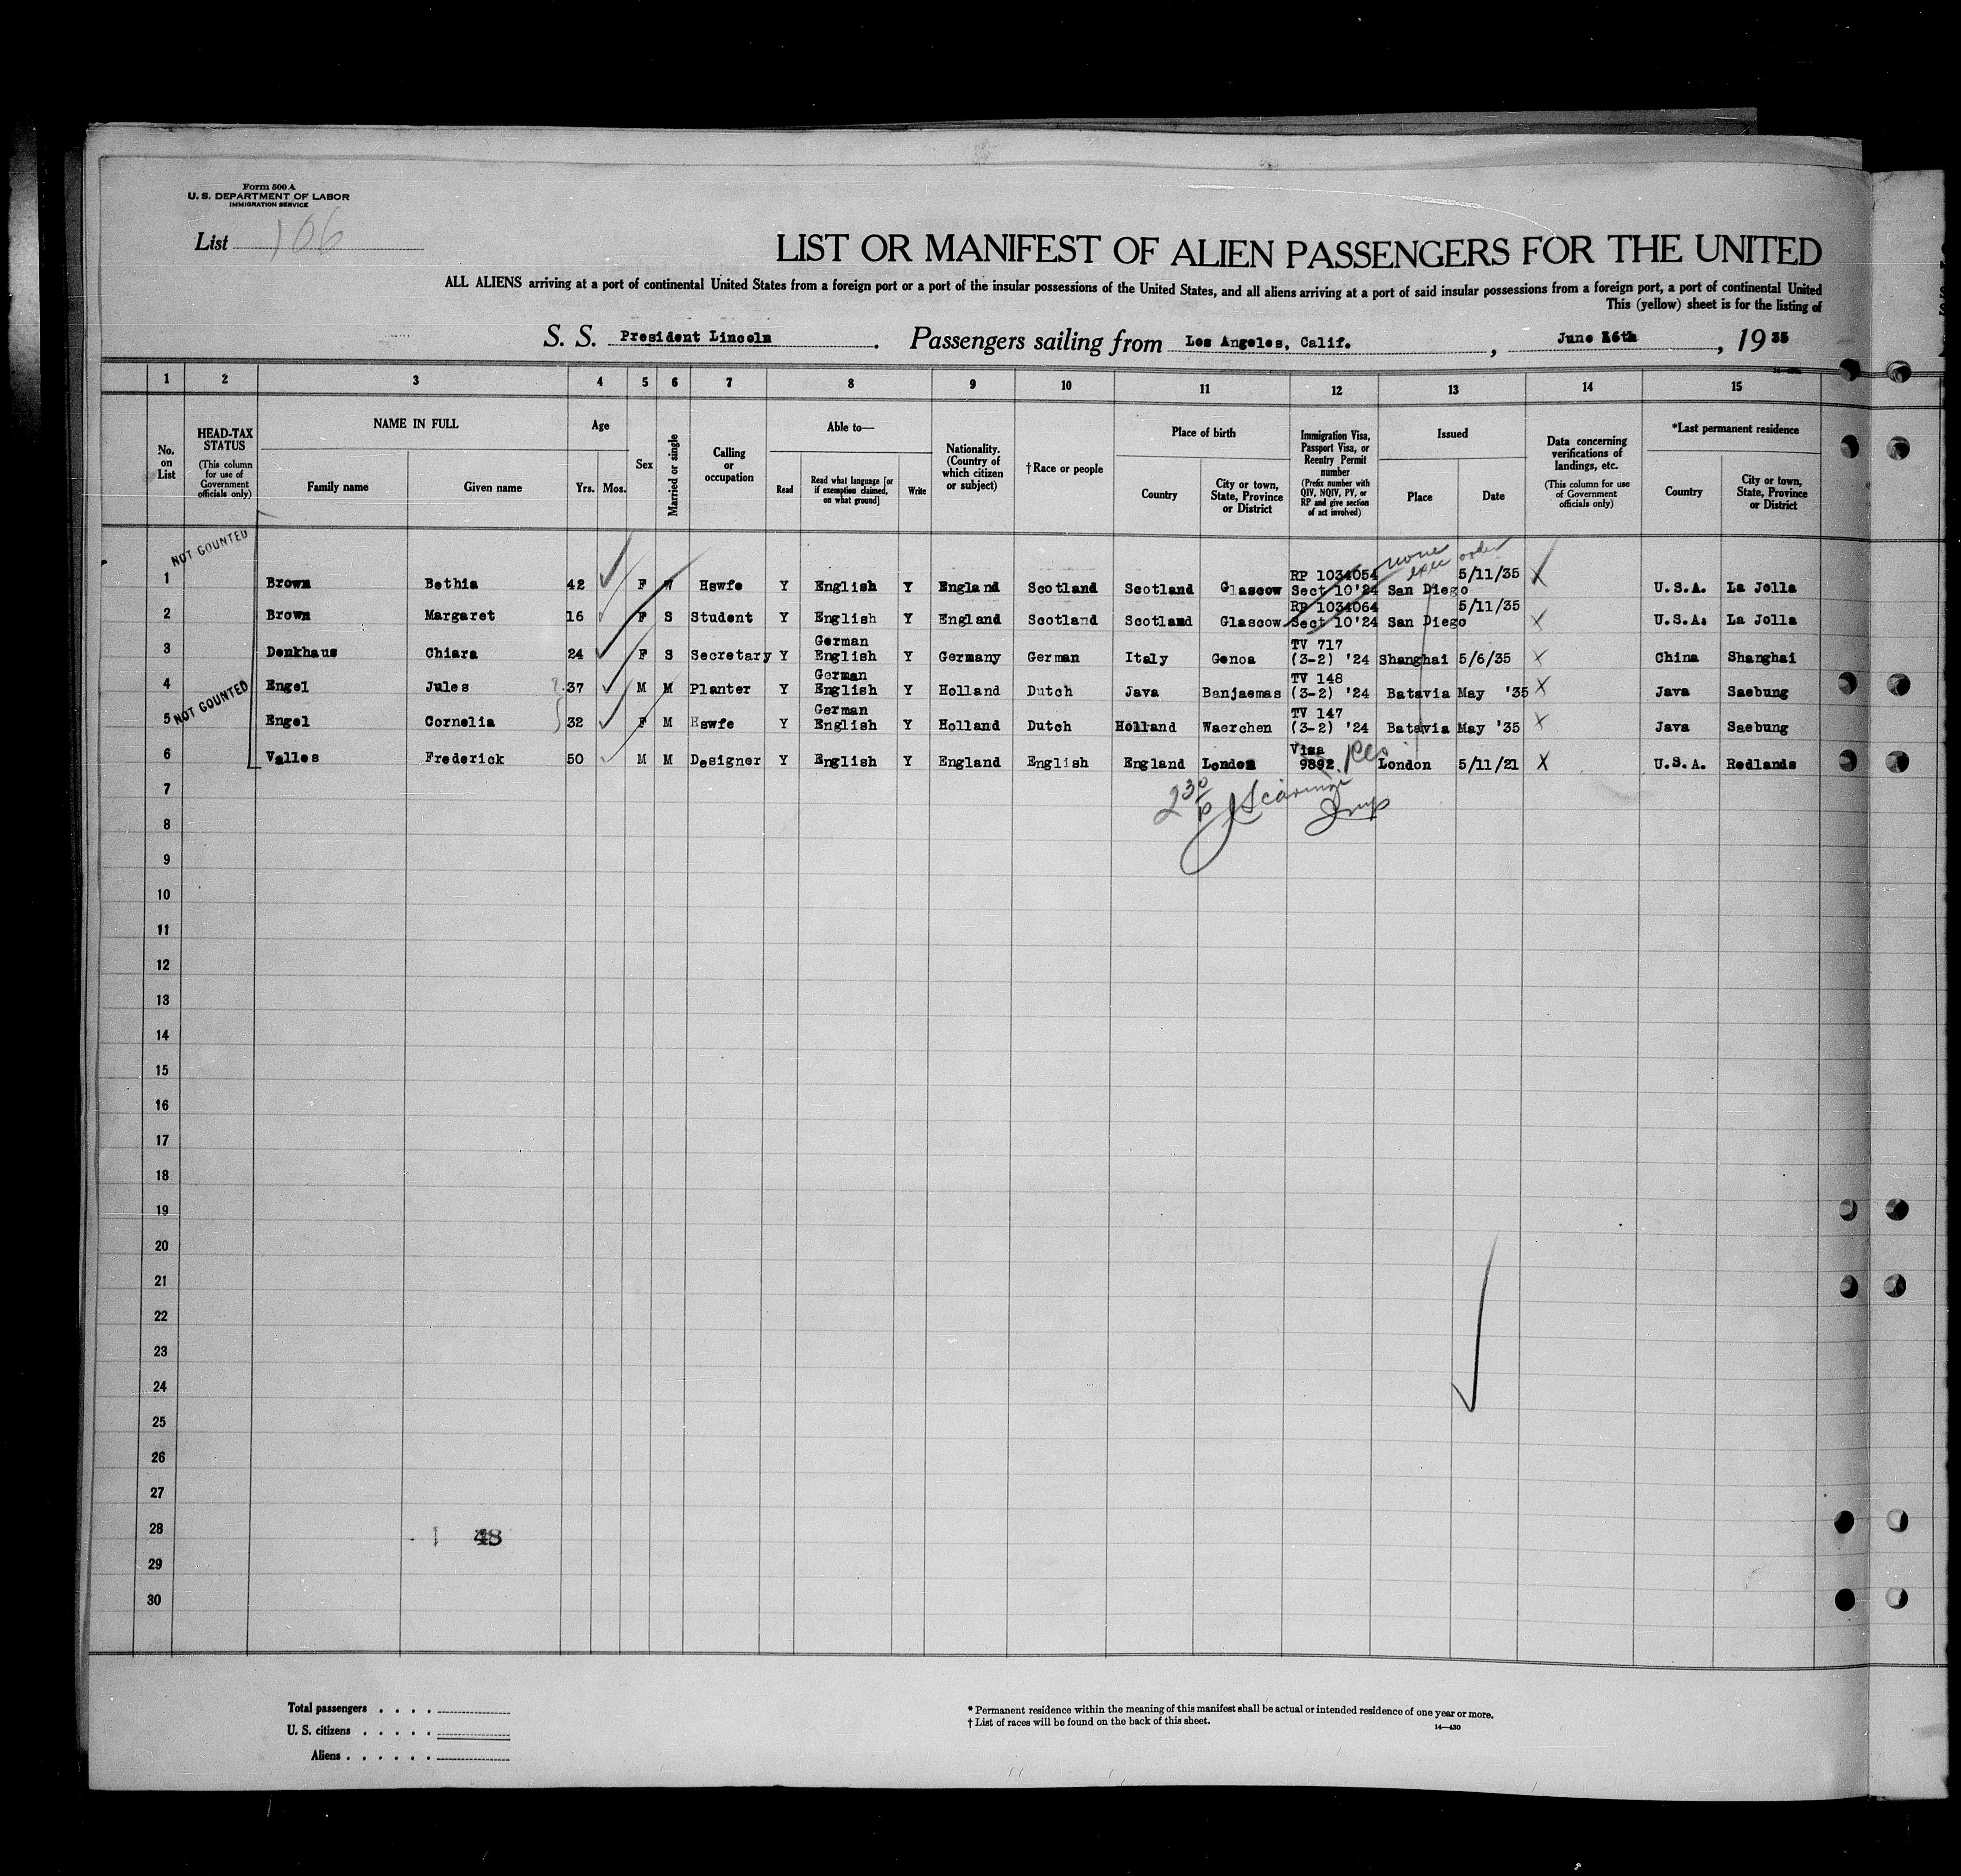 Form 500 A
U. S. DEPARTMENT OF LABOR
IMMIGRATION SERVICE
List 106
LIST OR MANIFEST OF ALIEN PASSENGERS FOR THE UNITED
ALL ALIENS arriving at a port of continental United States from a foreign port or a port of the insular possessions of the United States, and all aliens arriving at a port of said insular possessions from a foreign port, a port of continental United
This (yellow) sheet is for the listing of
S. S. President Lincoln. Passengers sailing from Los Angeles, Calif., June 16th, 1935
1 2 3 4 5 6 7 8 9 10 11 12 13 14 15
No. on List
HEAD-TAX STATUS
(This column for use of Government officials only)
NAME IN FULL
Family name Given name
Age
Yrs. Mos.
Sex
Married or single
Calling or occupation
Able to—
Read
Read what language [or if exemption claimed, on what ground]
Write
Nationality. (Country of which citizen or subject)
†Race or people
Place of birth
Country
City or town, State, Province or District
Immigration Visa, Passport Visa, or Reentry Permit number
(Prefix number with QIV, NQIV, PV, or RP and give section of act involved)
Issued
Place Date
Data concerning verifications of landings, etc.
(This column for use of Government officials only)
*Last permanent residence
Country
City or town, State, Province or District
NOT COUNTED
none
exec order
1 Brown Bethia 42 F W Hswfe Y English Y England Scotland Scotland Glascow RP 1034054 Sect 10'24 San Diego 5/11/35 X U.S.A. La Jolla
2 Brown Margaret 16 F S Student Y English Y England Scotland Scotland Glascow RP 1034064 Sect 10'24 San Diego 5/11/35 X U.S.A. La Jolla
3 Denkhaus Chiara 24 F S Secretary Y German English Y Germany German Italy Genoa TV 717 (3-2) '24 Shanghai 5/6/35 X China Shanghai
4 Engel Jules 37 M M Planter Y German English Y Holland Dutch Java Banjaemas TV 148 (3-2) '24 Batavia May '35 X Java Saebung
NOT COUNTED
5 Engel Cornelia 32 F M Hswfe Y German English Y Holland Dutch Holland Waerchen TV 147 (3-2) '24 Batavia May '35 X Java Saebung
6 Valles Frederick 50 M M Designer Y English Y England English England London Visa 9892. London 5/11/21 X U.S.A. Redlands
7
2 30 p
Insp
8
9
10
11
12
13
14
15
16
17
18
19
20
21
22
23
24
25
26
27
28
48
29
30
Total passengers . . . .
U. S. citizens . . . . .
Aliens . . . . . .
* Permanent residence within the meaning of this manifest shall be actual or intended residence of one year or more.
† List of races will be found on the back of this sheet.
14—430